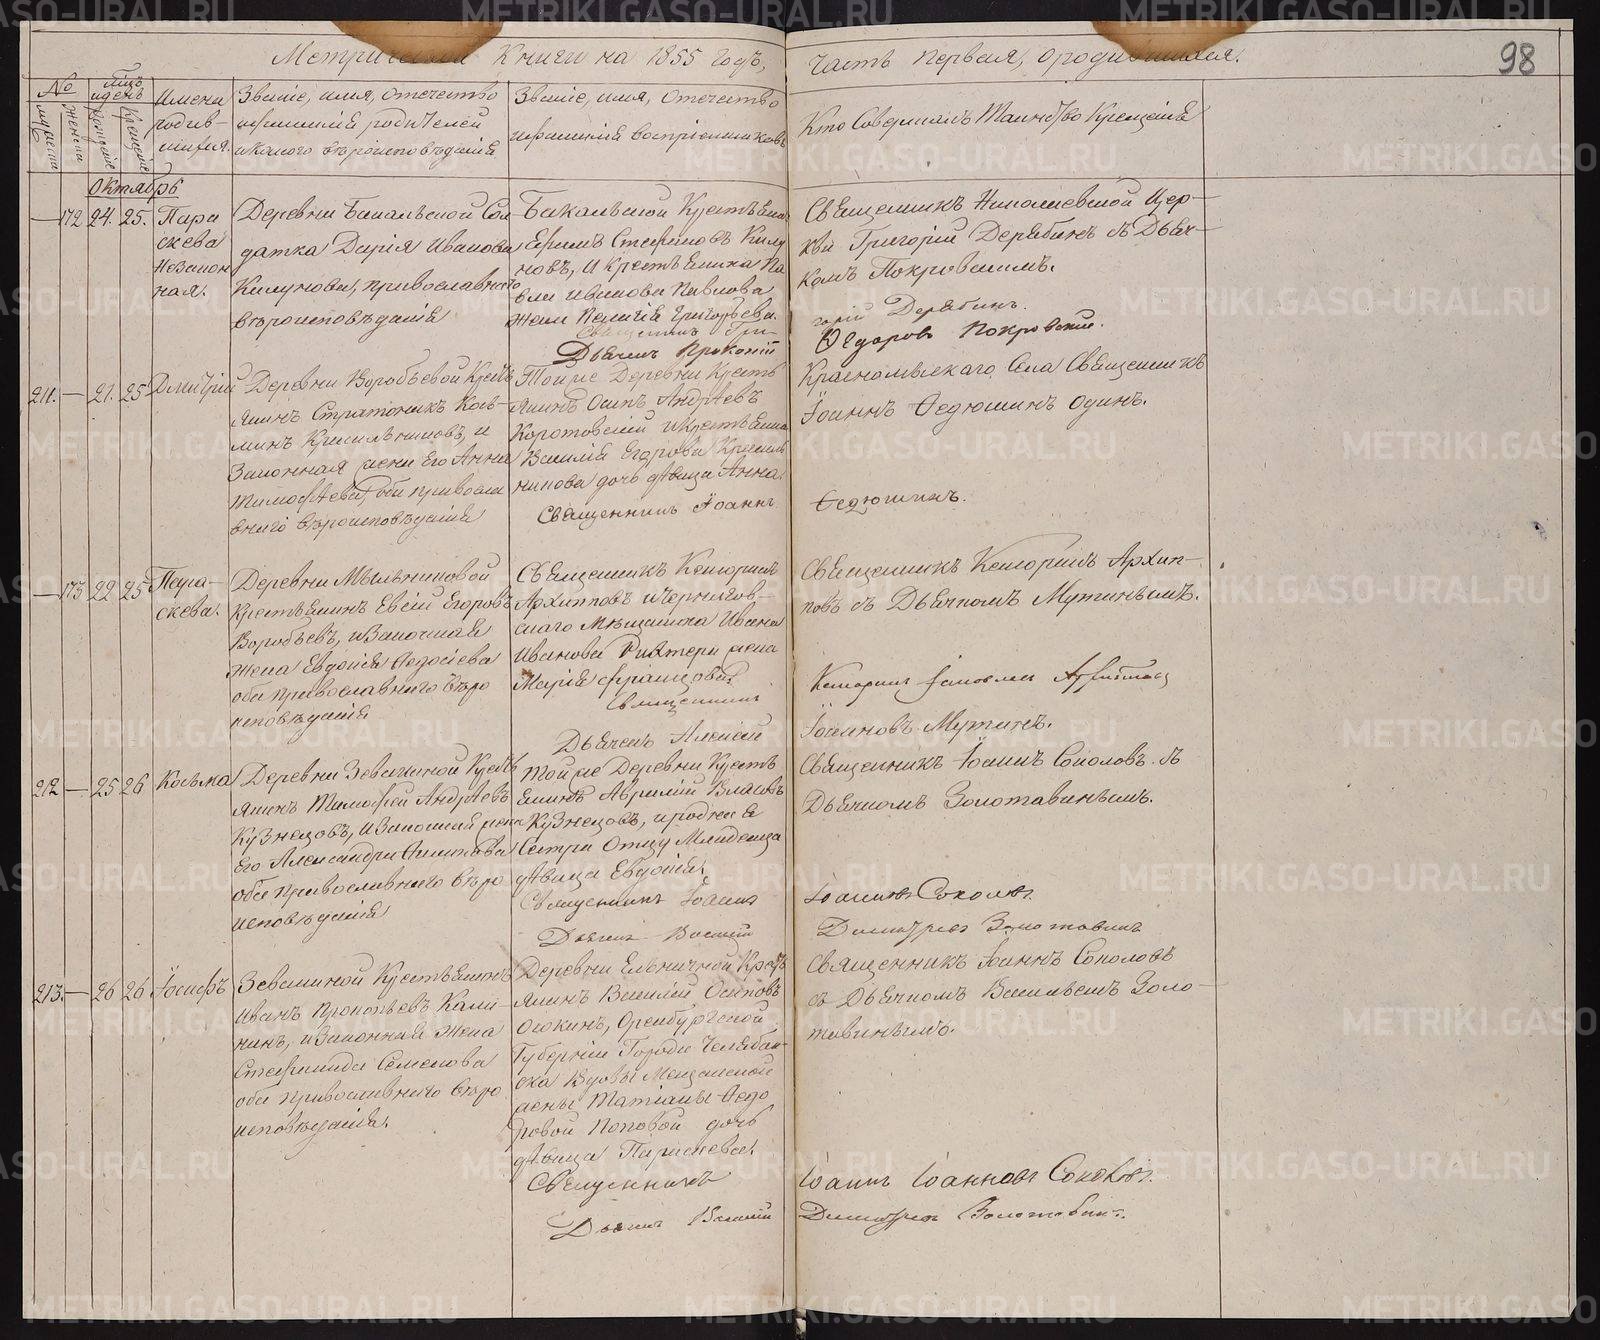 Метрической Книги на 1855 годъ,
Часть первая, о родившихся.
98
№
Мужеска
Женска
Мѣсяцъ и день
Рожденіе
Крещеніе
Имена
родив-
шихся.
Званіе, имя, отечество
и фамилія родителей
и какого вѣроисповѣданія
Званіе, имя, отечество
и фамилія воспріемниковъ
Кто совершалъ Таинство Крещенія
Октябрь
— 172 24. 25.
Пара
скева
незакон
ная.
Деревни Бакальской Сол
датка Дарія Иванова
Килунова, православнаго
вѣроисповѣданія
Бакальской Крестьянин
Ефимъ Стефановъ Килу
новъ, и крестьянина Па
вла Иванова Павлова
жена Пелагія Григорьева.
Священникъ Гри-
Дьячекъ Прокопій
Священникъ Николаевской Цер-
кви Григорій Дерябинъ съ Дьяч-
комъ Покровскимъ.
горій Дерябинъ.
Ѳедоровъ Покровскій.
211. — 21. 25
Дмитрій
Деревни Воробьевой Кресть
янинъ Стратоникъ Козь-
минъ Красильниковъ, и
Законная жена его Анна
Тимофѣева, оба правосла
внаго вѣроисповѣданія
Тойже Деревни Кресть
янинъ Осипъ Андрѣевъ
Коротовскій и крестьянина
Василія Егорова Красиль
никова дочь дѣвица Анна.
Священникъ Іоаннъ
Красномыскаго Села Священникъ
Іоаннъ Ѳедюшинъ одинъ.
Ѳедюшинъ.
— 173 22 25
Пара-
скева.
Деревни Мыльниковой
Крестьянинъ Евсій Егоровъ
Воробьевъ, и Законная
жена Евдокія Ѳедосіева
оба православнаго вѣро
исповѣданія
Священникъ Кенсоринъ
Архиповъ и Чернигов-
скаго Мѣщанина Ивана
Иванова Рихтера жена
Марія Францова.
Священникъ
Дьячекъ Алексій
Священникъ Кенсоринъ Архип-
повъ съ Дьячкомъ Мутинымъ.
Кенсоринъ
Іоанновъ Мутинъ.
212 — 25 26
Косьма
Деревни Зевакиной Кресть
янинъ Тимофей Андрѣевъ
Кузнецовъ, и Законная жена
его Александра Акинѳіева
оба православнаго вѣро
исповѣданія
Тойже Деревни Кресть
янинъ Аврамій Власовъ
Кузнецовъ, и родная
Сестра Отцу Младенца
дѣвица Евдокія.
Священникъ Іоаннъ
Дьячекъ Василій
Священникъ Іоаннъ Соколовъ съ
Дьячкомъ Золотавинымъ.
Іоанновъ Соколовъ.
Димитріевъ Золотавинъ
213. — 26 26
Іосифъ
Зевакиной Крестьянинъ
Иванъ Прокопьевъ Кали
нинъ, и Законная Жена
Стефанида Семенова
оба православнаго вѣро
исповѣданія.
Деревни Ельничной Кресть
янинъ Василій Осиповъ
Осокинъ, Оренбургской
Губерніи Города Челябин-
ска Вдовы Мещанской
жены Татіаны Ѳедо
ровой Поповой дочь
дѣвица Параскева.
Священникъ
Дьячекъ Василій
Священникъ Іоаннъ Соколовъ
съ Дьячкомъ Васильемъ Золо-
тавинымъ.
Іоаннъ Іоанновъ Соколовъ.
Димитріевъ Золотавинъ.
METRIKI.GASO-URAL.RU